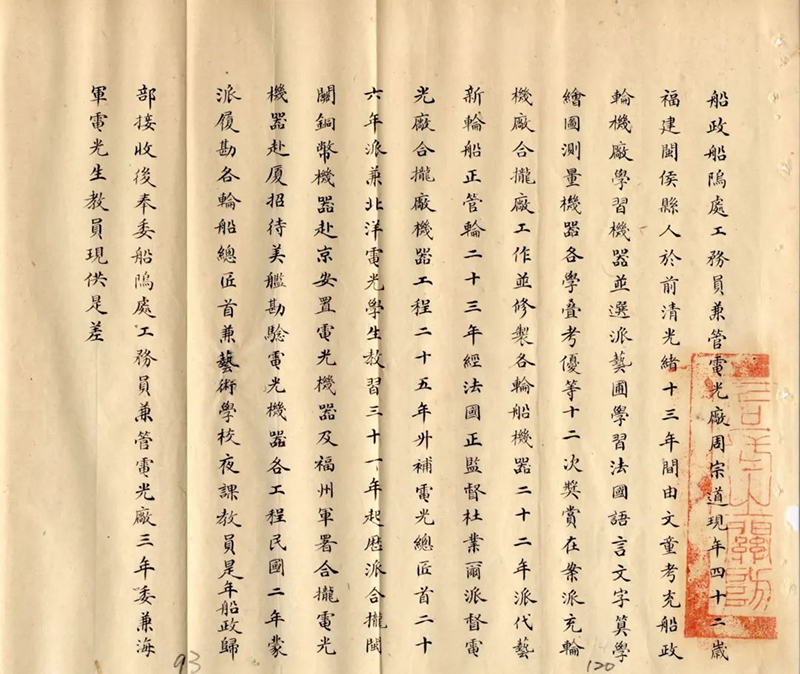 船政船隖處工務員兼管電光廠周宗道現年四十二歲
福建閩侯縣人於前清光緒十三年間由文童考充船政
輪機廠學習機器並選派藝圃學習法國語言文字算學
繪圖測量機器各學疊考優等十二次獎賞在案派充輪
機廠合攏廠工作並修製各輪船機器二十二年派代藝
新輪船正管輪二十三年經法國正監督杜業爾派督電
光廠合攏廠機器工程二十五年升補電光總匠首二十
六年派兼北洋電光學生教習三十一年起歷派合攏閩
關銅幣機器赴京安置電光機器及福州軍署合攏電光
機器赴厦招待美艦勘驗電光機器各工程民國二年蒙
派履勘各輪船總匠首兼藝術學校夜課教員是年船政歸
部接收後奉委船隖處工務員兼管電光廠三年委兼海
軍電光生教員現供是差
93
120